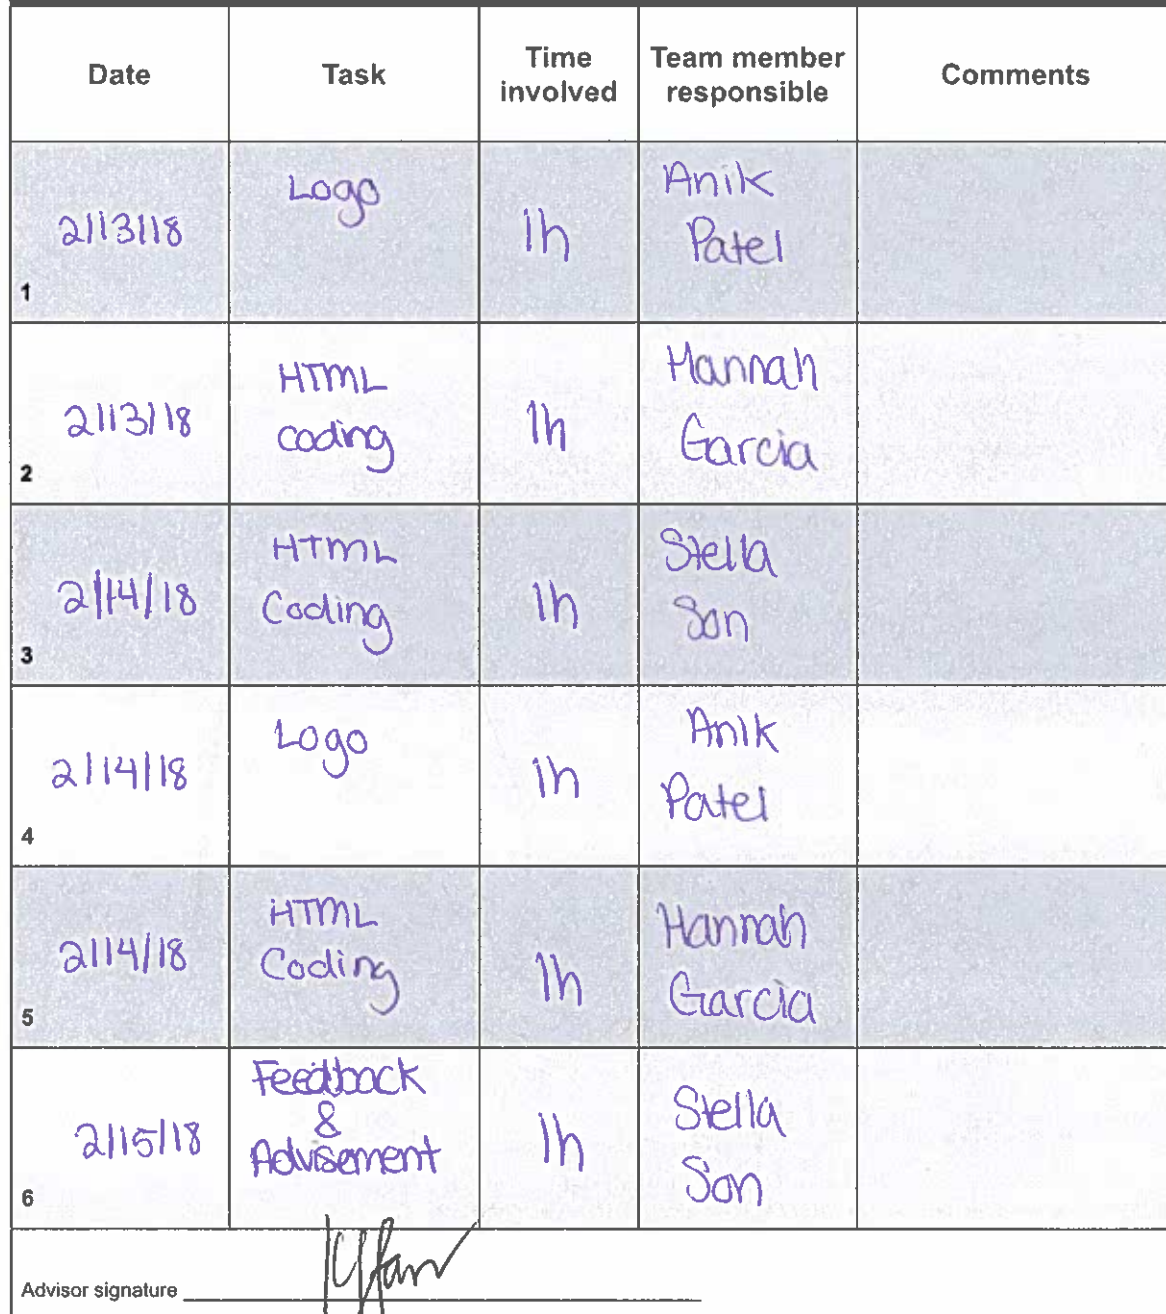 Date Task Time involved Team member responsible Comments
1 2/13/18 Logo 1h Anik Patel
2 2/13/18 HTML coding 1h Hannah Garcia
3 2/14/18 HTML Coding 1h Stella Son
4 2/14/18 Logo 1h Anik Patel
5 2/14/18 HTML Coding 1h Hannah Garcia
6 2/15/18 Feedback & Advisement 1h Stella Son
Advisor signature